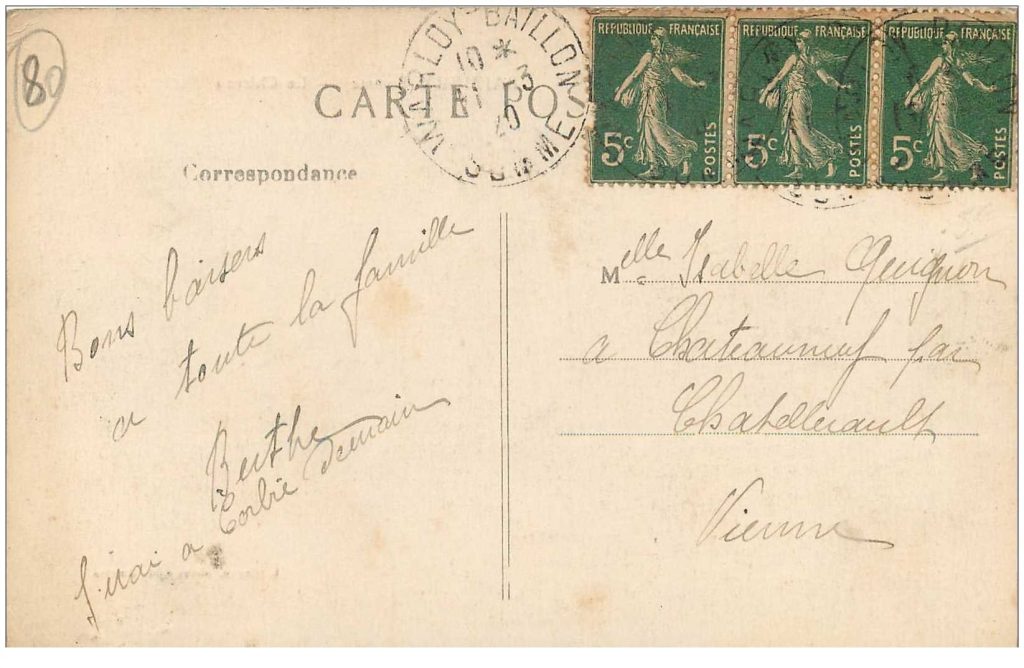 80
CARTE POS
WARLOY-BAILLON
10 *
31 - 3
20
SOMME
REPUBLIQUE FRANÇAISE
5c
POSTES
REPUBLIQUE FRANÇAISE
5c
POSTES
REPUBLIQUE FRANÇAISE
5c
POSTES
Correspondance
Bons baisers
a toute la famille
Berthe
J'irai a Corbie demain
Melle Isabelle Quignon
a Chateauneuf par
Chatellerault
Vienne